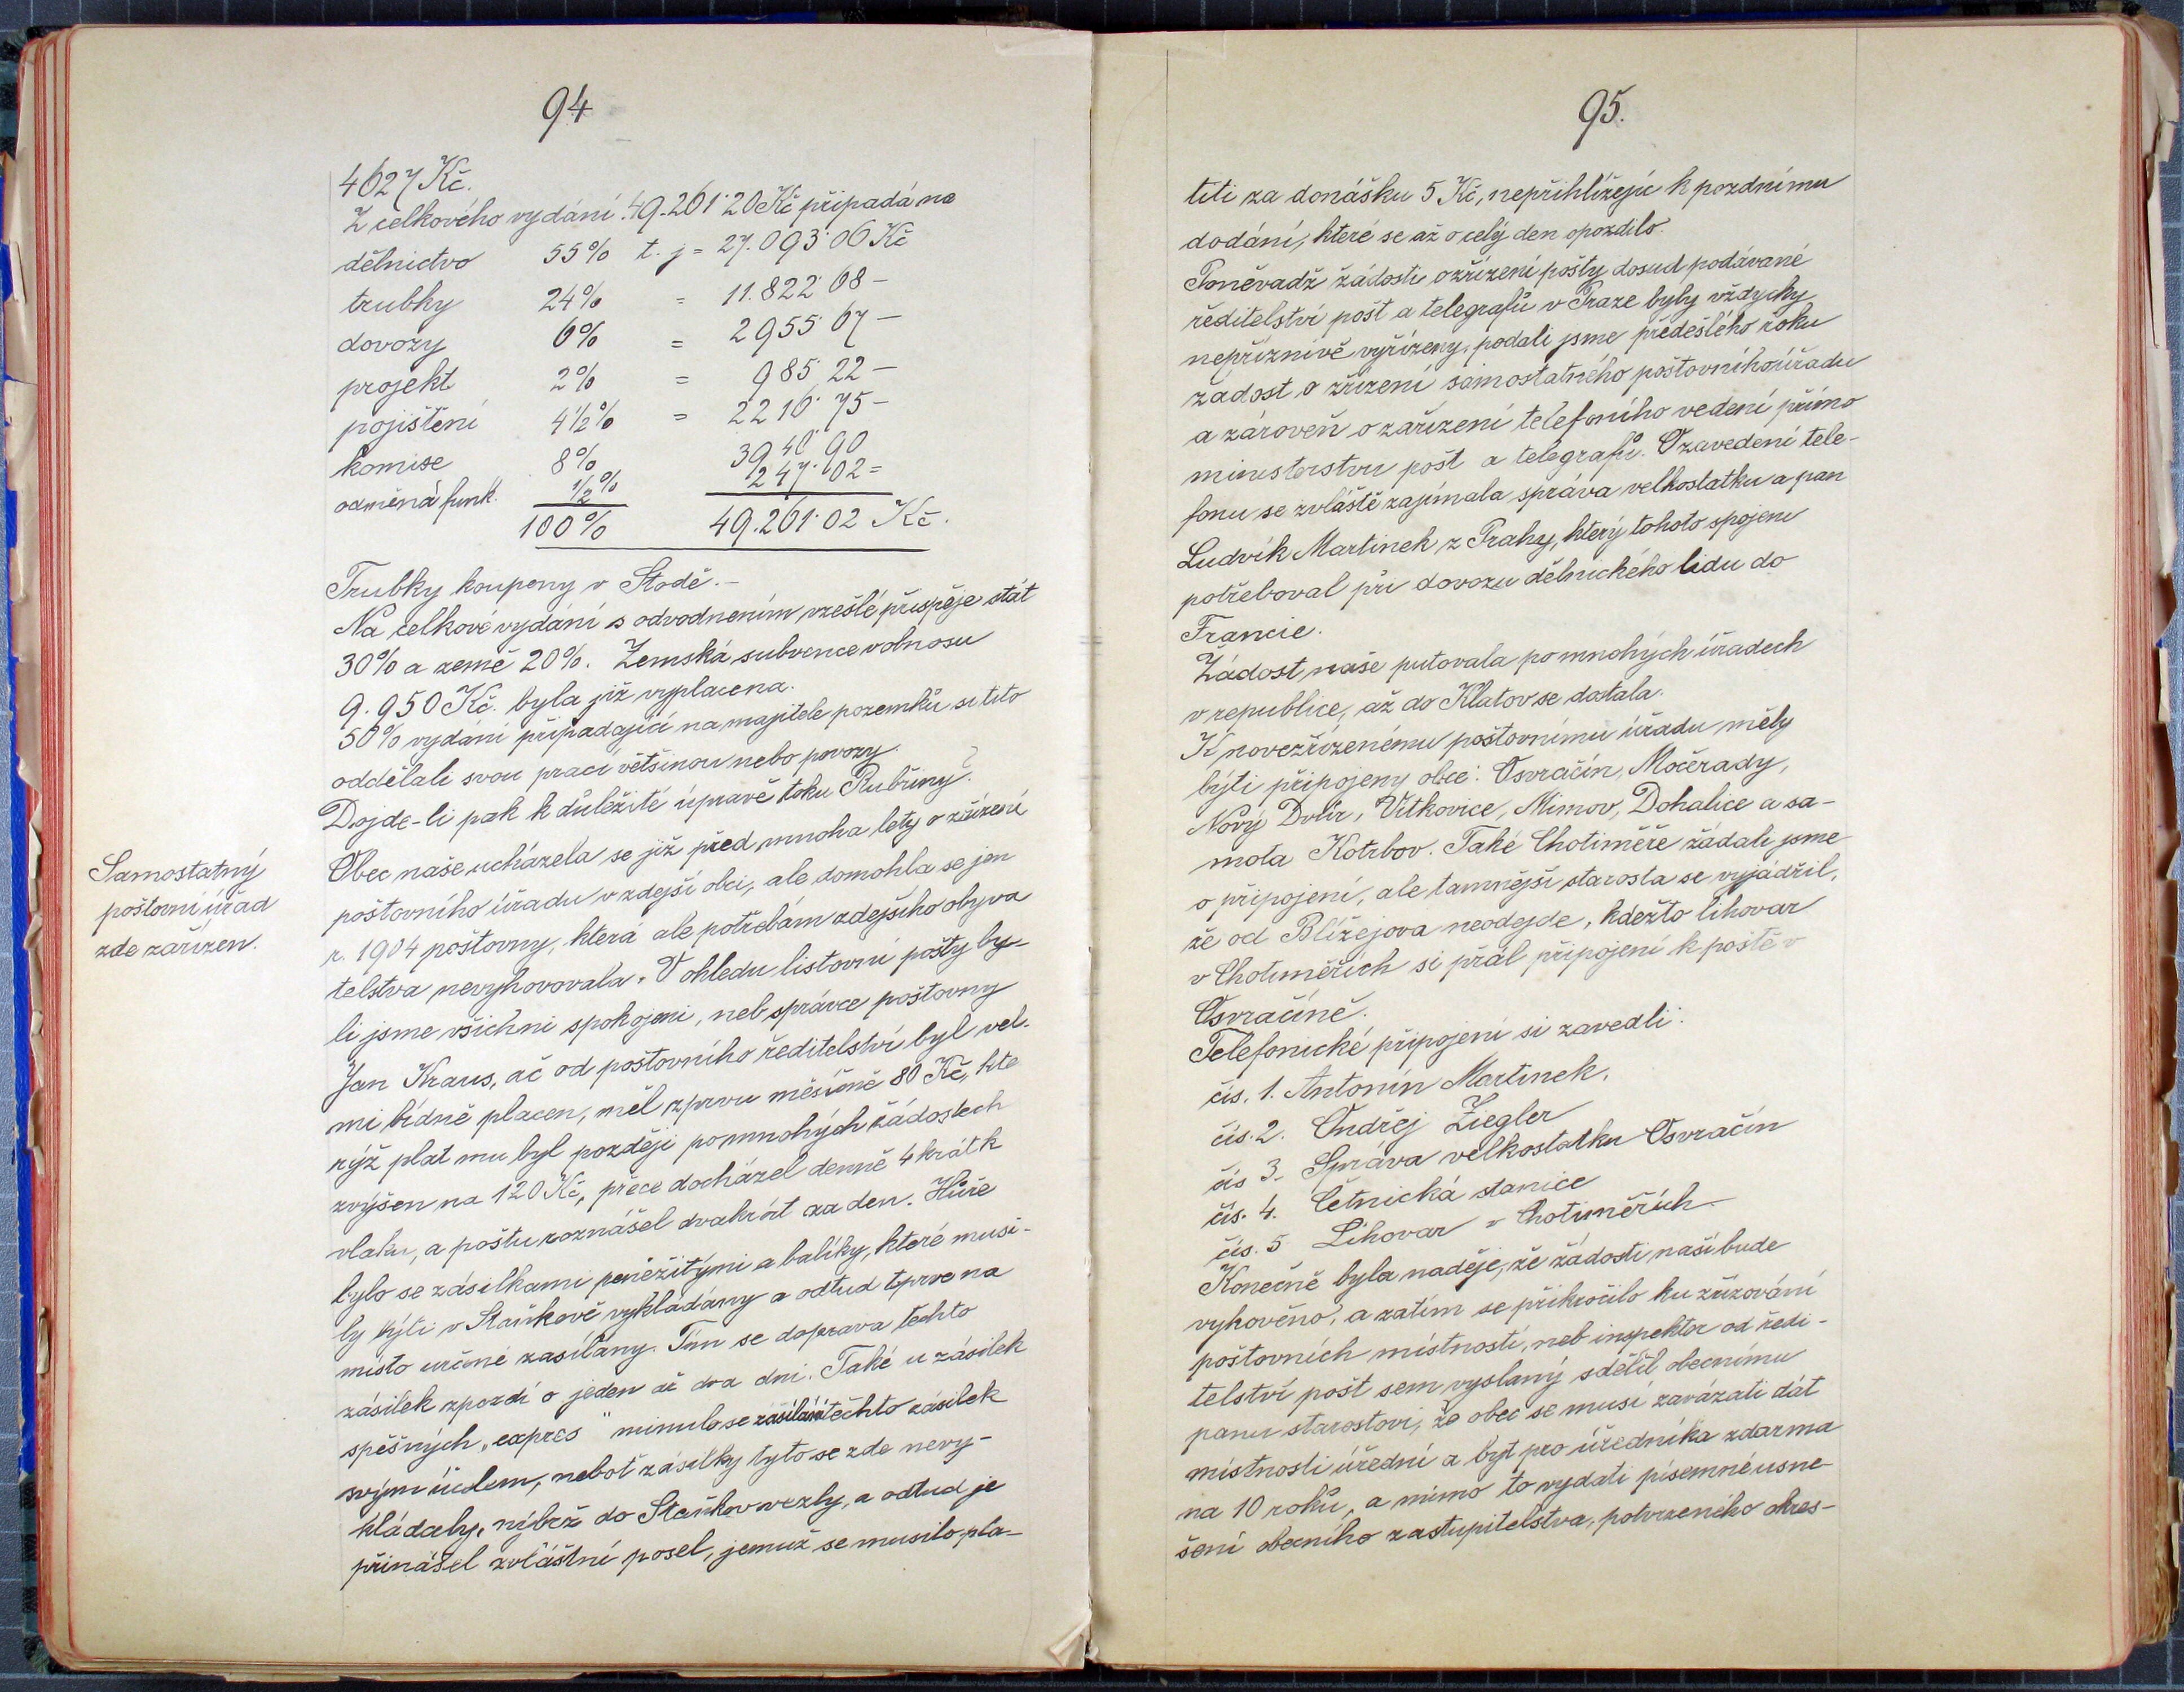 94
4627 Kč.
Z celkového vydání 49.261·20 Kč připadá na
dělnictvo 55% t. j = 27.093·06 Kč
trubky 24% = 11.822·68 -
dovozy 6% = 2955·67 -
projekt 2% = 985,22 -
pojištění 4½% = 2216·75 -
komise 8% 3940·90
odměna funk. ½% 247·602 =
100% 49.261·02 Kč.
Trubky koupeny v Stodě. -
Na celkové vydání s odvodněním vzešlé přispěje stát
30% a země 20%. Zemská subvence v obnosu
9.950 Kč. byla již vyplacena.
50% vydání připadající na majitele pozemků si tito
oddělali svou prací většinou nebo povozy.
Dojde-li pak k důležité úpravě toku Rubřiny?
Samostatný
poštovní úřad
zde zařízen.
Obec naše ucházela se již před mnoha lety o zřízení
poštovního úřadu v zdejší obci, ale domohla se jen
r. 1904 poštovny, která ale potřebám zdejšího obyva
telstva nevyhovovala. V ohledu listovní pošty by-
li jsme všichni spokojeni, neb správce poštovny
Jan Kraus, ač od poštovního ředitelství byl vel-
mi bídně placen, měl zprvu měsíčně 80 Kč, kte
rýž plat mu byl později po mnohých žádostech
zvýšen na 120 Kč, přece docházel denně 4 krát k
vlaku, a poštu roznášel dvakrát za den. Hůře
bylo se zásilkami peněžitými a balíky, které musi-
ly býti v Staňkově vykládány a odtud teprve na
místo určené zasílány. Tím se doprava těchto
zásilek zpozdí o jeden až dva dni. Také u zásilek
spěšných „expres" minulo se zasílání těchto zásilek
svým účelem, neboť zásilky tyto se zde nevy-
kládaly, nýbrž do Staňkov vezly, a odtud je
přinášel zvláštní posel, jemuž se musilo pla-
95.
titi za donášku 5 Kč, nepřihlížejíc k pozdnímu
dodání, které se až o celý den opozdilo.
Poněvadž žádosti o zřízení pošty dosud podávané
ředitelství pošt a telegrafů v Praze byly vždycky
nepříznivě vyřízeny, podali jsme předešlého roku
žádost o zřízení samostatného poštovního úřadu
a zároveň o zařízení telefoního vedení přímo
ministerstvu pošt a telegrafů. O zavedení tele-
fonu se zvláště zajímala správa velkostatku a pan
Ludvík Martinek z Prahy, který tohoto spojení
potřeboval při dovozu dělnického lidu do
Francie.
Žádost naše putovala po mnohých úřadech
v republice, až do Klatov se dostala.
K novezřízenému poštovnímu úřadu měly
býti připojeny obce: Osvračín, Močerady,
Nový Dvůr, Vitkovice, Mimov, Dohalice a sa-
mota Kotrbov. Také Chotiměře žádali jsme
o připojení, ale tamnější starosta se vyjádřil,
že od Blížejova neodejde, kdežto lihovar
v Chotiměřich si přál připojení k poště v
Osvračíně.
Telefonické připojení si zavedli:
čis. 1. Antonín Martinek.
čis. 2. Ondřej Ziegler
čis 3. Správa velkostatku Osvračín
čis. 4. Četnická stanice
čis. 5 Lihovar v Chotiměřích.
Konečně byla naděje, že žádosti naší bude
vyhověno, a zatím se přikročilo ku zřizování
poštovních místností, neb inspektor od ředi-
telství pošt sem vyslaný sdělil obecnímu
panu starostovi, že obec se musí zavázati dát
místnosti úřední a byt pro úředníka zdarma
na 10 roků, a mimo to vydati písemné usne-
šení obecního zastupitelstva, potvrzeného okres-